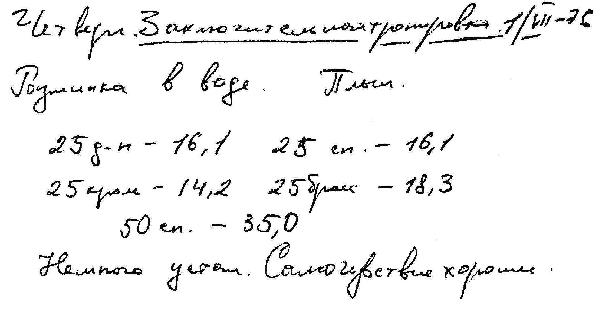 Четверг. Заключительная тренировка 1/VII-76
Разминка в воде. Плыл.
25 д-п – 16,1 25 сп. – 16,1
25 кром – 14,2 25 брас – 18,3
50 сп. – 35,0
Немного устал. Самочувствие хорошее.